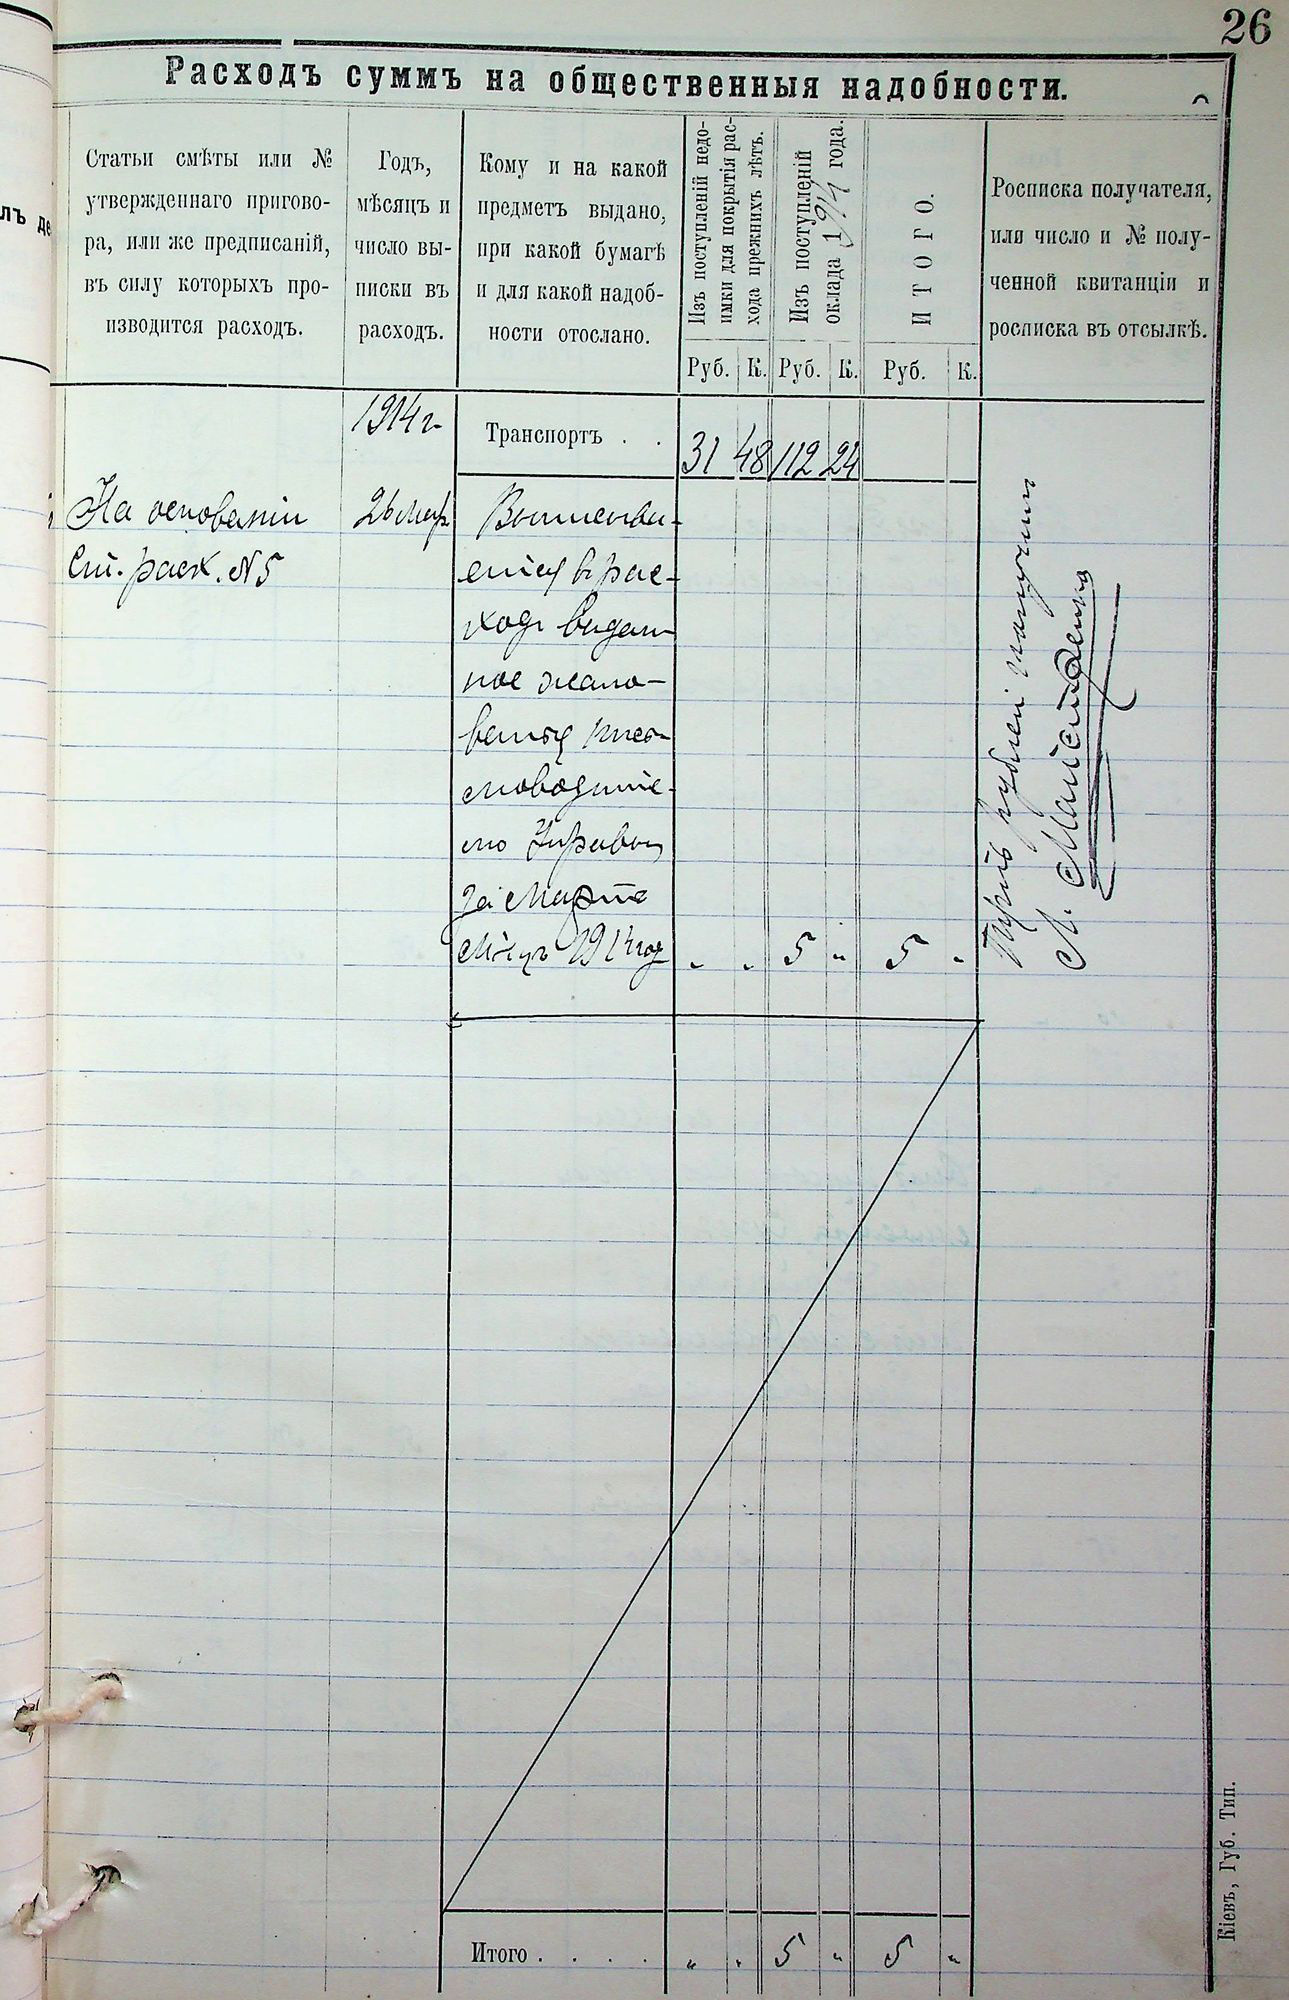 26
Расходъ суммъ на общественныя надобности.
Статьи смѣты или №
утвержденнаго пригово-
ра, или же предписаній,
въ силу которыхъ про-
изводится расходъ.
Годъ,
мѣсяцъ и
число вы-
писки въ
расходъ.
Кому и на какой
предметъ выдано,
при какой бумагѣ
и для какой надоб-
ности отослано.
Изъ поступленій недо-
имки для покрытія рас-
хода прежнихъ лѣтъ.
Изъ поступленій
оклада 1914 года.
ИТОГО.
Росписка получателя,
или число и № полу-
ченной квитанціи и
росписка въ отсылкѣ.
Руб. К. Руб. К. Руб. К.
1914 г.
Транспортъ . .
31 48 112 24
На основаніи
Ст. расх. № 5
26 Мар.
Выписыва-
ется в рас-
ходъ выдан-
ное жало-
ванья пись-
моводите-
лю Управы
за Мартъ
Мѣ-цъ 1914 год
„ „ 5 „ 5 „
рублей получил
Итого . . . .
„ „ 5 „ 5 „
Кіевъ, Губ. Тип.
лъ де